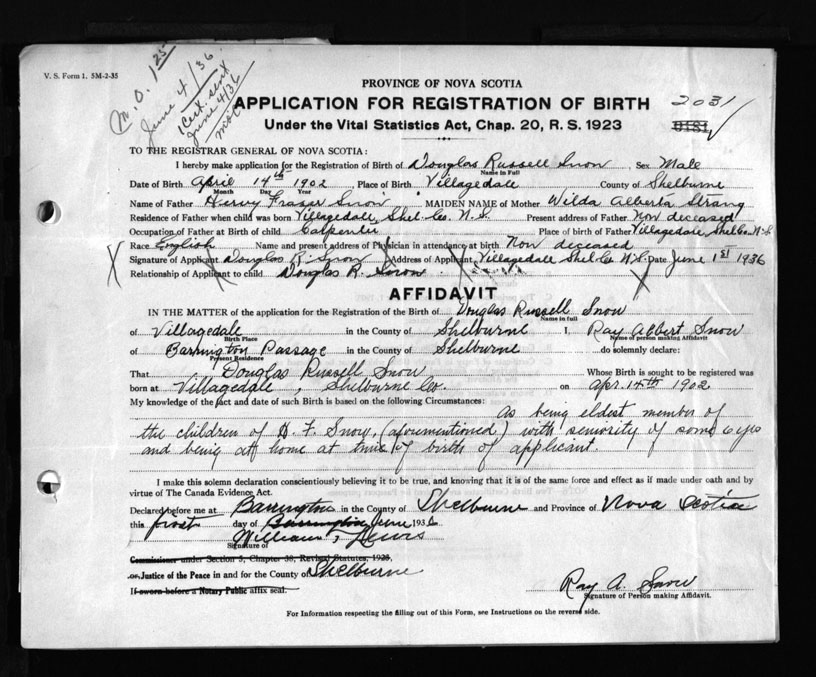 V. S. Form 1. 5M-2-35
M.O. 1.25
June 4/36
1 Cert. sent
June 4/36
PROVINCE OF NOVA SCOTIA
APPLICATION FOR REGISTRATION OF BIRTH
2031
Under the Vital Statistics Act, Chap. 20, R. S. 1923
TO THE REGISTRAR GENERAL OF NOVA SCOTIA:
I hereby make application for the Registration of Birth of Douglas Russell Snow Sex Male
Name in Full
Date of Birth April 14th 1902, Place of Birth Villagedale County of Shelburne
Month Day Year
Name of Father Harvy Frazer Snow MAIDEN NAME of Mother Wilda Alberta Strang
Residence of Father when child was born Villagedale, Shel. Co. N.S. Present address of Father Now deceased
Occupation of Father at Birth of child Carpenter Place of birth of Father Villagedale, Shel Co. N.S
Race English Name and present address of Physician in attendance at birth Now deceased
Signature of Applicant Douglas R. Snow Address of Applicant Villagedale Shel Co N.S. Date June 1st 1936
Relationship of Applicant to child Douglas R. Snow
AFFIDAVIT
IN THE MATTER of the application for the Registration of Birth of Douglas Russell Snow
Name in full
of Villagedale in the County of Shelburne I, Ray Albert Snow
Birth Place Name of person making Affidavit
of Barrington Passage in the County of Shelburne do solemnly declare:
Present Residence
That Douglas Russell Snow Whose Birth is sought to be registered was
born at Villagedale, Shelburne Co. on Apr. 14th 1902
My knowledge of the fact and date of such Birth is based on the following Circumstances:
as being eldest member of
the children of H. F. Snow, (aforementioned) with seniority of some 6 yrs
and being at home at time of birth of applicant.
I make this solemn declaration conscientiously believing it to be true, and knowing that it is of the same force and effect as if made under oath and by
virtue of The Canada Evidence Act.
Declared before me at Barrington in the County of Shelburne and Province of Nova Scotia
this first day of Barrington June 1936
William T. Lewis
Signature of
Commissioner under Section 5, Chapter 38, Revised Statutes, 1923,
or Justice of the Peace in and for the County of Shelburne
If sworn before a Notary Public affix seal.
Ray A. Snow
Signature of Person making Affidavit.
For Information respecting the filling out of this Form, see Instructions on the reverse side.